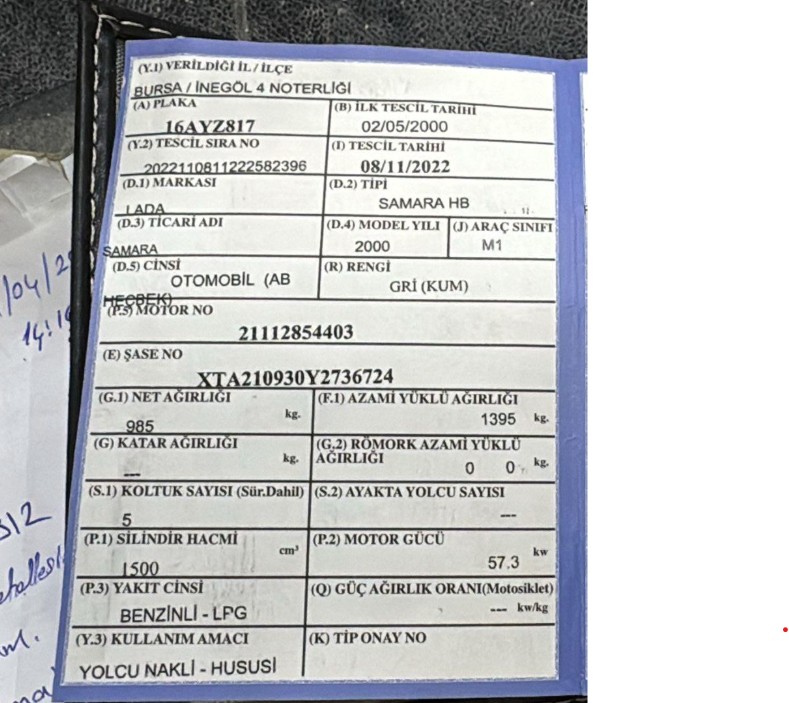 (Y.1) VERİLDİĞİ İL / İLÇE
BURSA / İNEGÖL 4 NOTERLİĞİ
(A) PLAKA (B) İLK TESCİL TARİHİ
16AYZ817 02/05/2000
(Y.2) TESCİL SIRA NO (I) TESCİL TARİHİ
2022110811222582396 08/11/2022
(D.1) MARKASI (D.2) TİPİ
LADA SAMARA HB
(D.3) TİCARİ ADI (D.4) MODEL YILI (J) ARAÇ SINIFI
SAMARA 2000 M1
(D.5) CİNSİ (R) RENGİ
OTOMOBİL (AB GRİ (KUM)
HEÇBEK)
(P.5) MOTOR NO
21112854403
(E) ŞASE NO
XTA210930Y2736724
(G.1) NET AĞIRLIĞI (F.1) AZAMİ YÜKLÜ AĞIRLIĞI
985 kg. 1395 kg.
(G) KATAR AĞIRLIĞI (G.2) RÖMORK AZAMİ YÜKLÜ
AĞIRLIĞI
--- kg. 0 0 kg.
(S.1) KOLTUK SAYISI (Sür.Dahil) (S.2) AYAKTA YOLCU SAYISI
5 ---
(P.1) SİLİNDİR HACMİ (P.2) MOTOR GÜCÜ
1500 cm³ 57.3 kw
(P.3) YAKIT CİNSİ (Q) GÜÇ AĞIRLIK ORANI(Motosiklet)
BENZİNLİ - LPG --- kw/kg
(Y.3) KULLANIM AMACI (K) TİP ONAY NO
YOLCU NAKLİ - HUSUSİ